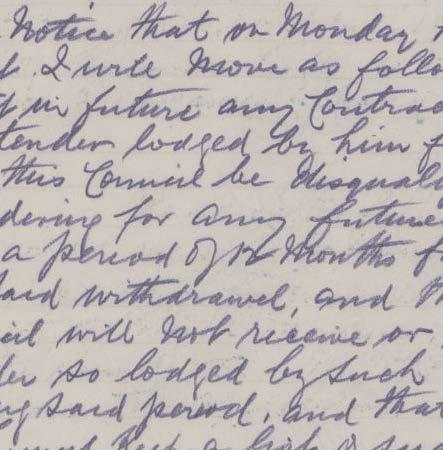 Notice that on Monday
I will move as follo
in future any Contrac
tender lodged by him f
this Council be disqualif
dering for any future
a period of 12 Months f
said withdrawel, and
cil will not receive or
der so lodged by such
ing said period, and that
keep a